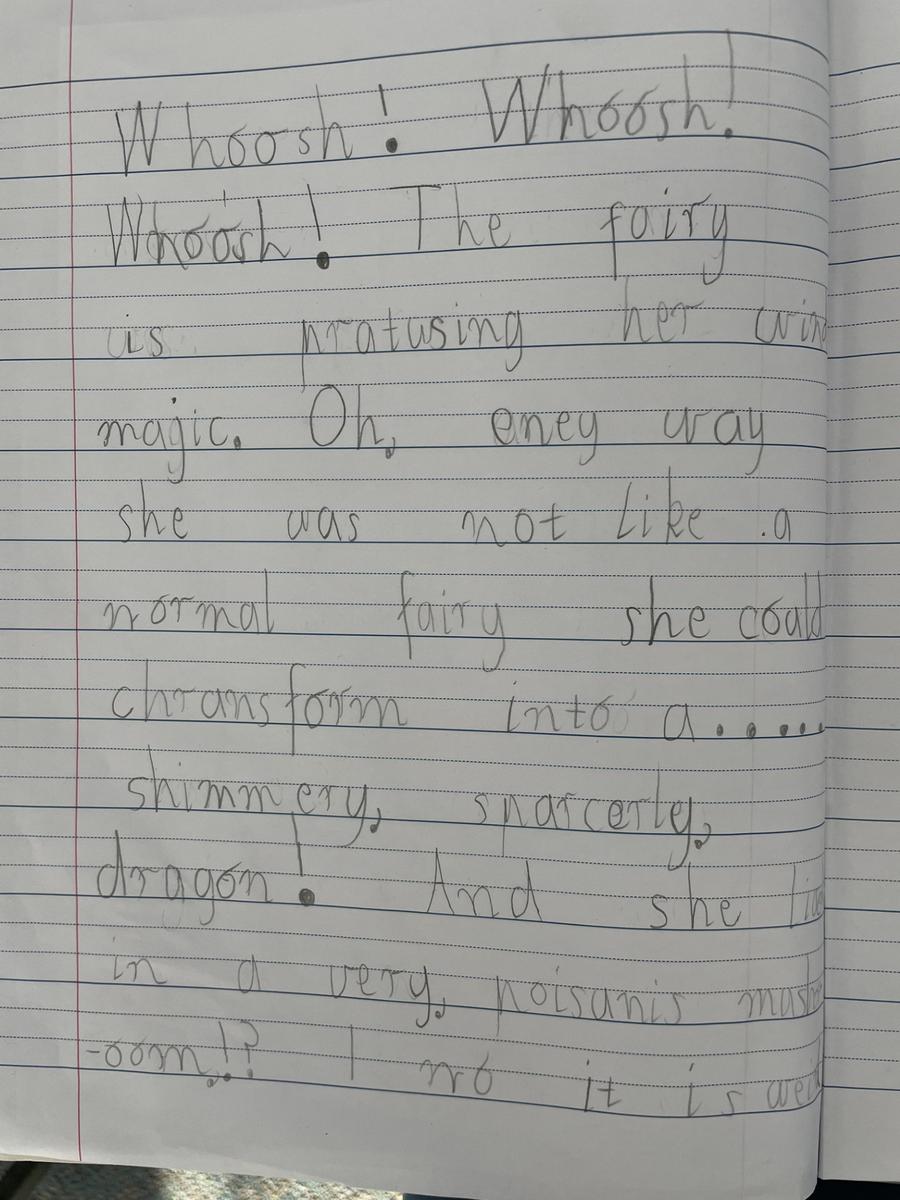 Whoosh! Whoosh!
Whoosh! The fairy
is pratusing her
magic. Oh, eney way
she was not like a
normal fairy she could
chransform into a.....
shimmery, sparcerly,
dragon! And she
in a very, poisanis mush
-oom!? I no it is